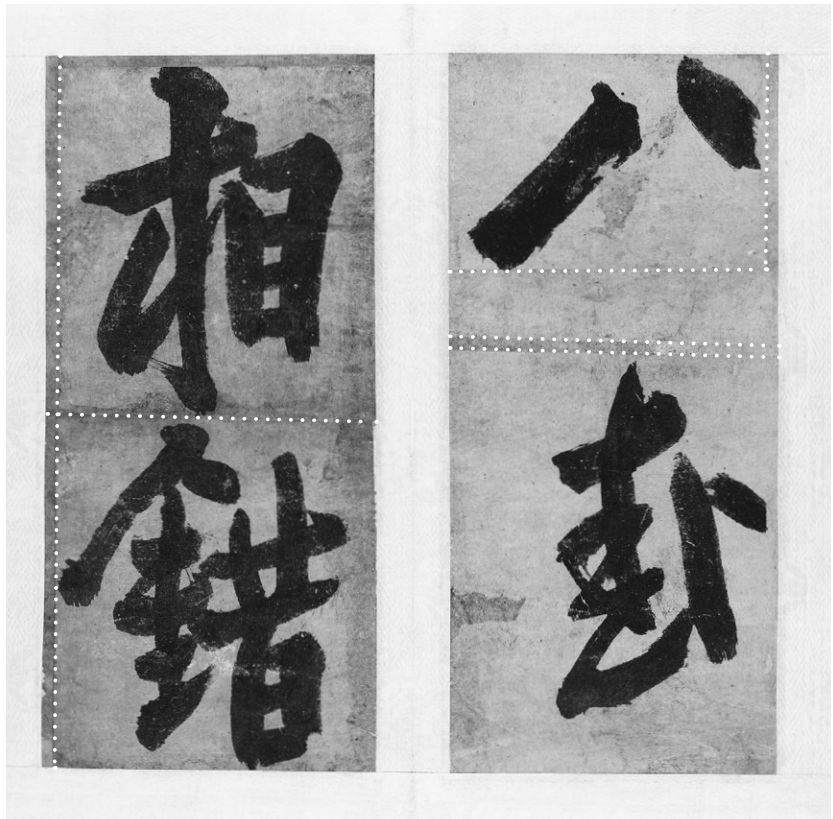 八卦
相錯